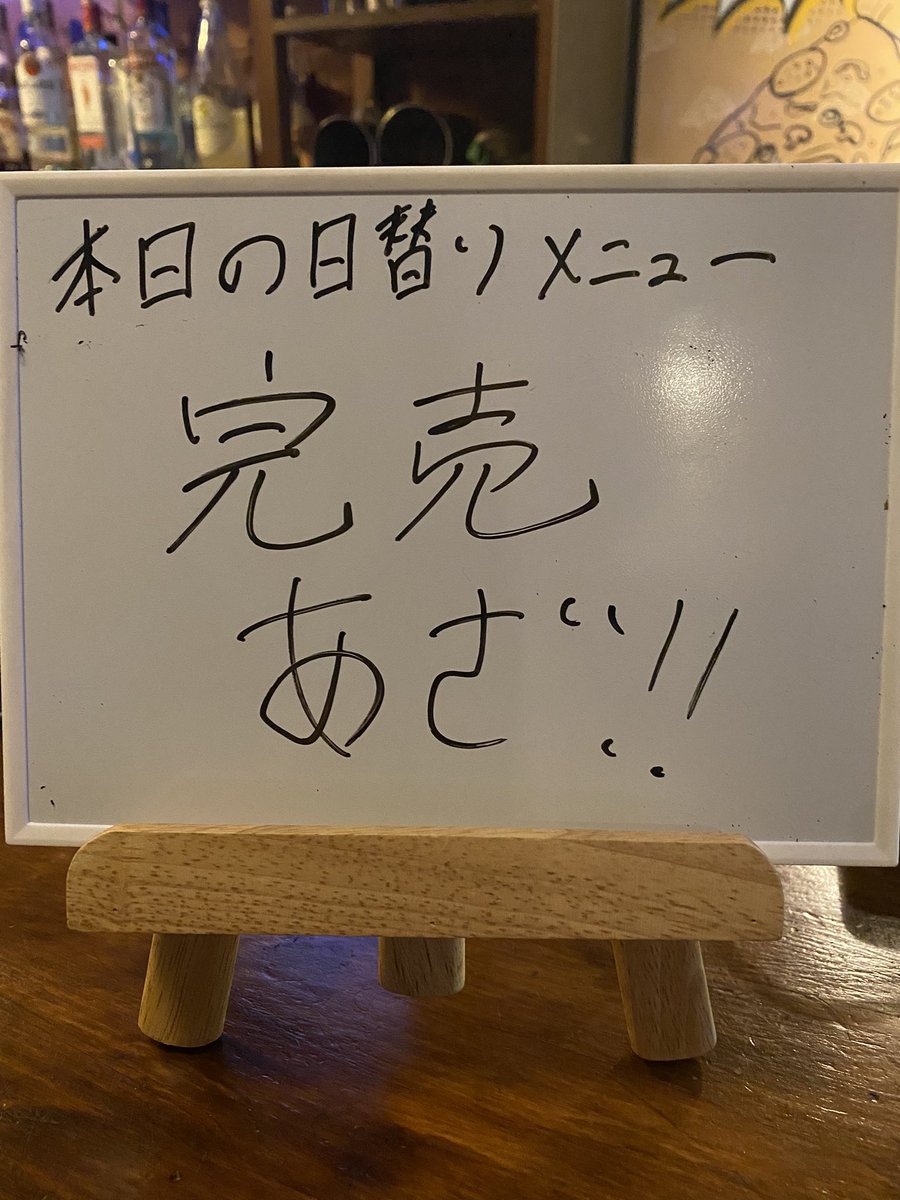 本日の日替りメニュー
完売
あざ!!